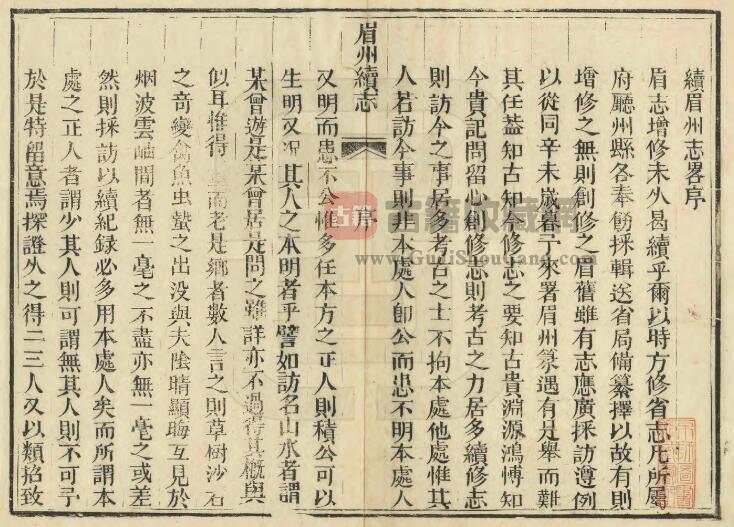 續眉州志畧序
眉志增修未久曷續乎爾以時方修省志凡所屬
府廳州縣各奉飭採輯送省局備纂擇以故有則
增修之無則創修之眉舊雖有志應廣採訪遵例
以從同辛未歲暮予來署眉州篆遇有是舉而難
其任葢知古知今修志之要知古貴淵源鴻愽知
今貴記問留心創修志則考古之力居多續修志
則訪今之事居多考古之士不拘本處他處惟其
人若訪今事則非本處人卽公而患不明本處人
眉州續志
序
又明而患不公惟多任本方之正人則積公可以
生明又况其人之本明者乎譬如訪名山水者謂
某曾遊是某曾居是問之雖詳亦不過得其概與
似耳惟得而老是鄉者數人言之則草樹沙石
之奇變禽魚虫蛩之出没與夫陰晴顯晦互見於
烟波雲岫間者無一毫之不盡亦無一毫之或差
然則採訪以續紀録必多用本處人矣而所謂本
處之正人者謂少其人則可謂無其人則不可予
於是特留意焉採證久之得二三人又以類招致
古籍收藏網
www.GuJiShouCang.com